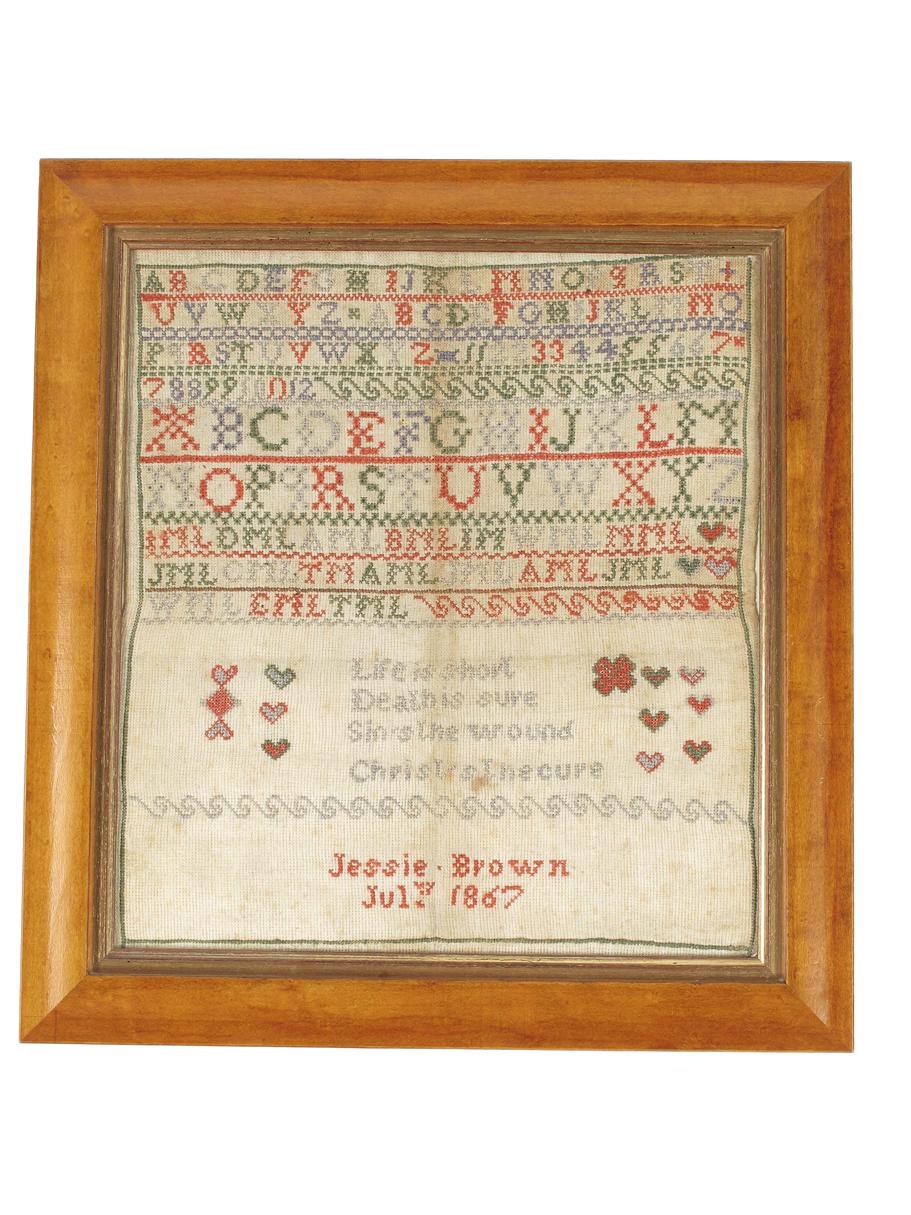 A B C D E F G H I J K L M N O P Q R S T
U V W X Y Z A B C D E F G H I J K L M N O
P Q R S T U V W X Y Z 11 22 33 44 55 66 7
7 8 8 9 9 10 11 12
A B C D E F G H I J K L M
N O P Q R S T U V W X Y Z
ML DML AML BML IM WML MML
JML CML TM AML JML AML JML
WML EML TML
Life is short
Death is sure
Sin is the wound
Christ is the cure
Jessie · Brown
July 1867